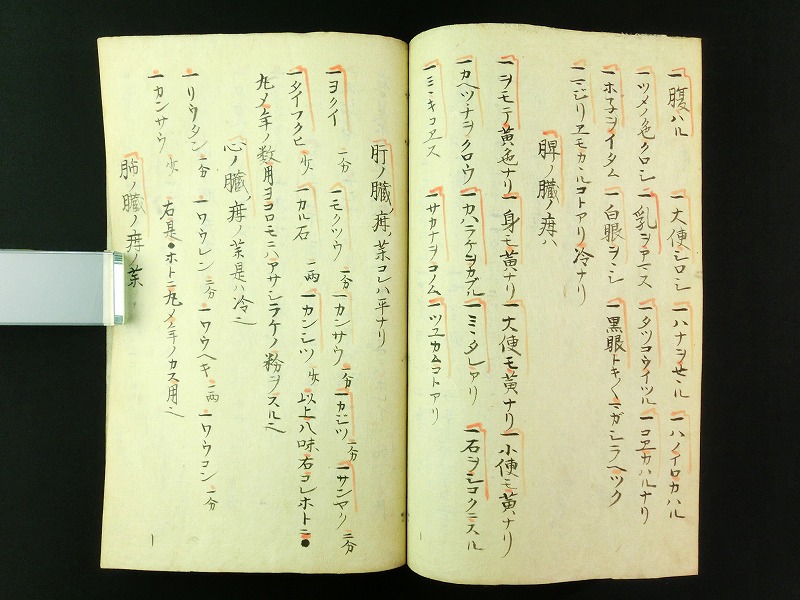 一腹ハル 一大便シロシ 一ハナヲせヽル 一ハノイロカハル
一ツメノ色クロシ 一乳ヲアマス 一タツコウイツル 一コヱカハルナリ
一ホ子ヲイタム 一白眼ヲミシ 一黒眼トキ〳〵マガシラヘツク
一ニジリヱモカヽルコトアリ冷ナリ
脾ノ臓ノ疳ハ
一ヲモテ黄色ナリ 一身モ黄ハナリ 一大便モ黄ナリ 一小便モ黄ナリ
一カベツチヲクロウ 一カハラケヲカブル 一ミヽタレアリ 一石ヲシコクニスル
一ミヽキコヱス 一サカナヲコノム 一ツユカムコトアリ
肝ノ臓ノ疳ノ薬コレハ平ナリ
一ヨクイ 二分 一モクツウ 一分 一カンサウ 二分 一カジツ 二分 一サンヤク 二分
一タイフクヒ 少 一カル石 一両 一カンシツ 少 以上八味右コレホトニ●
丸メ年ノ数用ヨコロモニハアサシラケノ粉ヲスル之
心ノ臓ノ疳ノ薬是ハ冷之
一リウタン 一分 一ワウレン 二分 一ワウヘキ 一両 一ワウコン 一分
一カンサウ 少 右是●ホトニ丸メ年ノカス用之
肺ノ臓ノ疳ノ薬